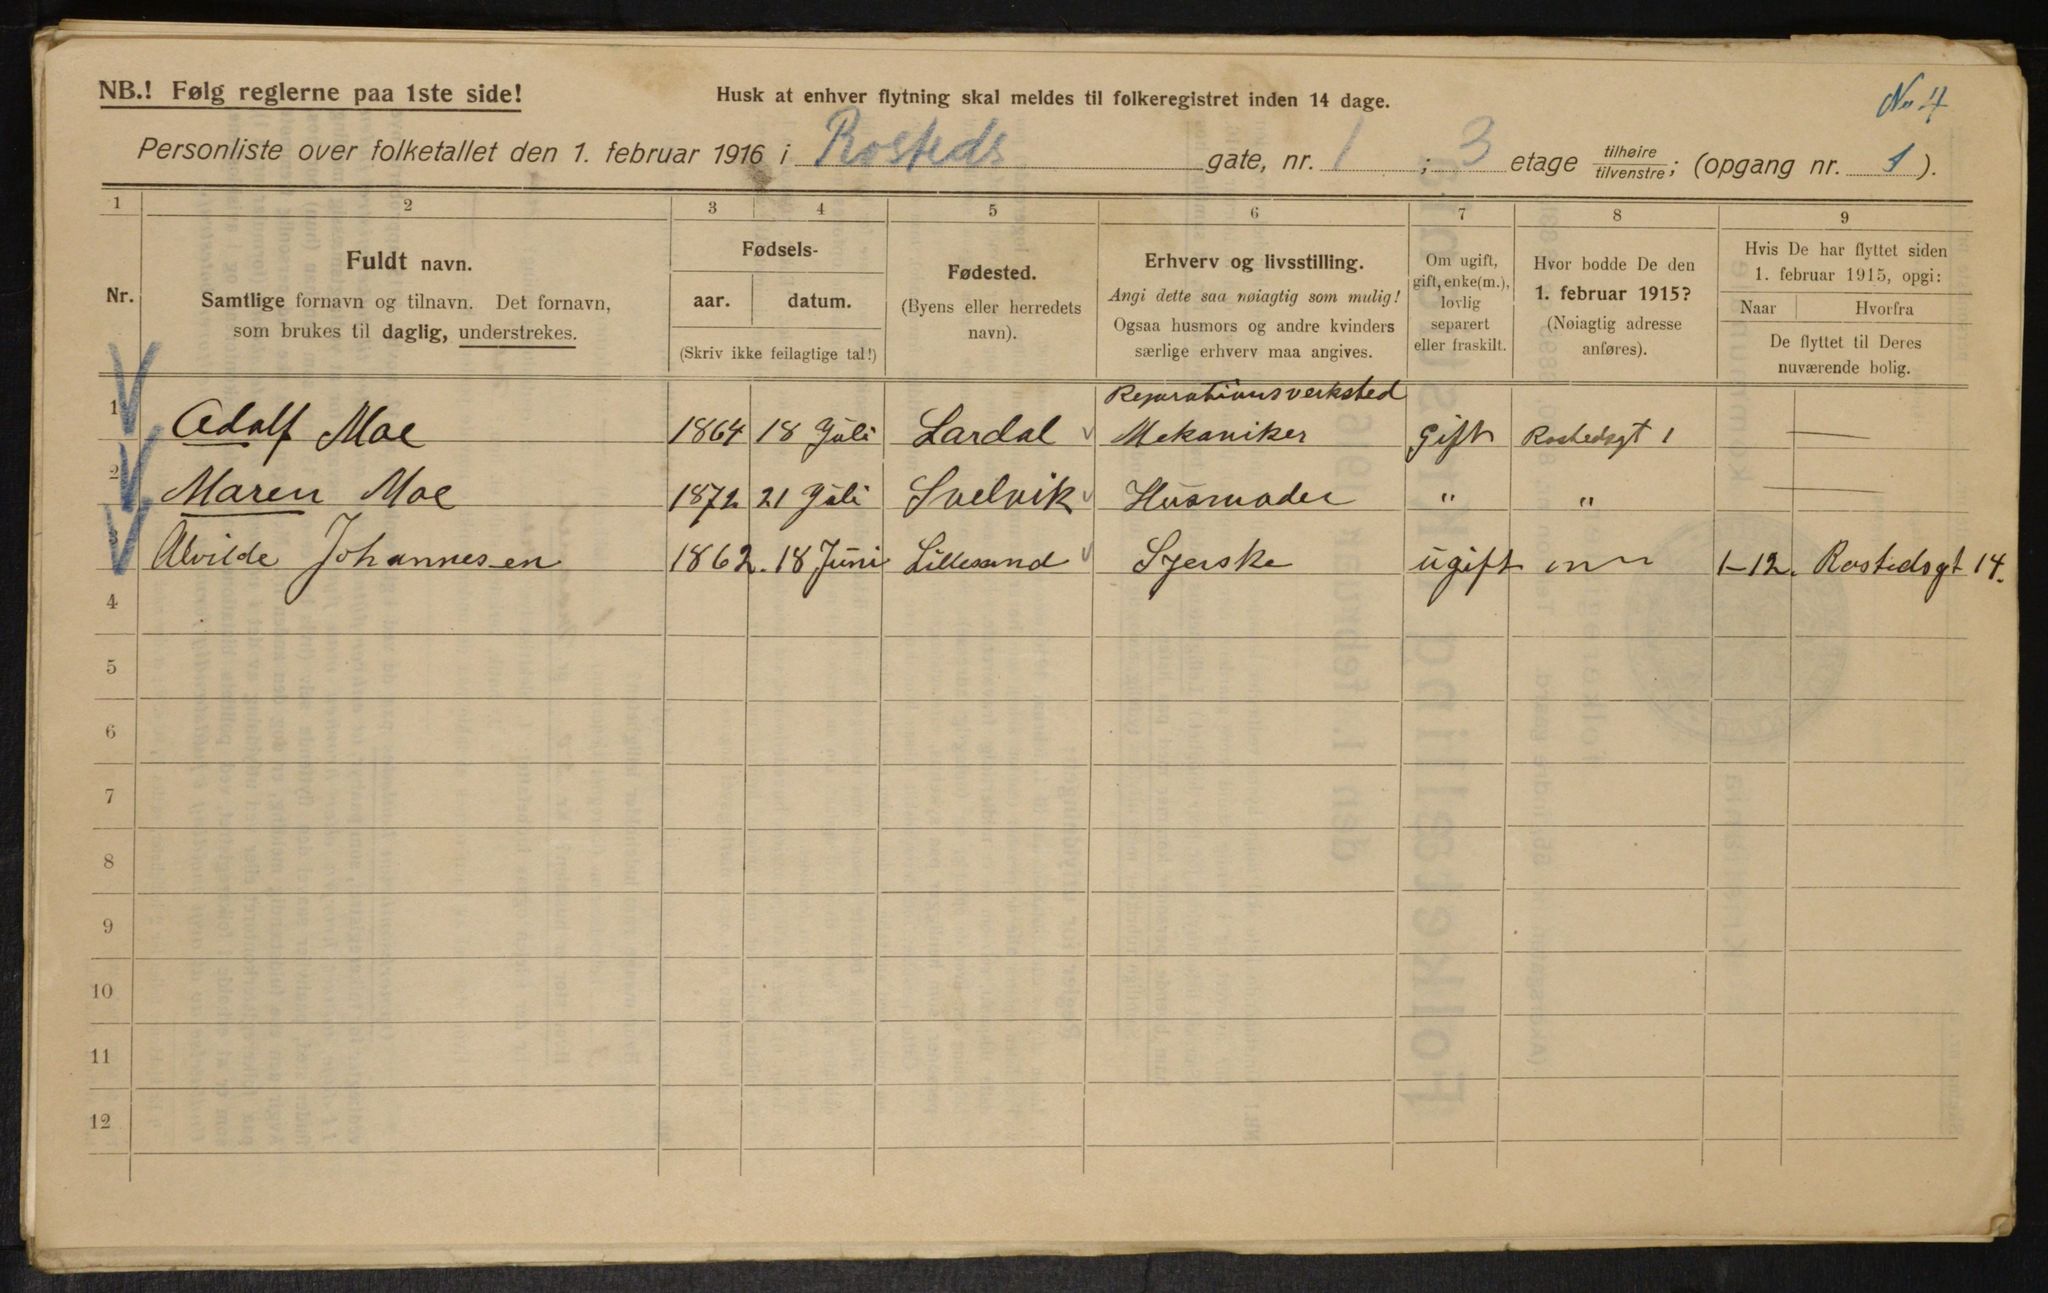 NB.! Følg reglerne paa 1ste side!
Husk at enhver flytning skal meldes til folkeregistret inden 14 dage.
No 4
Personliste over folketallet den 1. februar 1916 i Rosteds gate, nr. 1 ; 3 etage tilhøire/tilvenstre; (opgang nr. 1 ).
1 2 3 4 5 6 7 8 9
Nr.
Fuldt navn.
Samtlige fornavn og tilnavn. Det fornavn,
som brukes til daglig, understrekes.
Fødsels-
aar. datum.
(Skriv ikke feilagtige tal!)
Fødested.
(Byens eller herredets
navn).
Erhverv og livsstilling.
Angi dette saa nøiagtig som mulig!
Ogsaa husmors og andre kvinders
særlige erhverv maa angives.
Om ugift,
gift, enke(m.),
lovlig
separert
eller fraskilt.
Hvor bodde De den
1. februar 1915?
(Nøiagtig adresse
anføres).
Hvis De har flyttet siden
1. februar 1915, opgi:
Naar Hvorfra
De flyttet til Deres
nuværende bolig.
Reparationsverksted
1 Adolf Moe 1864 18 Juli Lardal Mekaniker Gift Rostedsgt 1 —
2 Maren Moe 1872 21 Juli Svelvik Husmoder " " —
3 Alvilde Johannesen 1862. 18 Juni Lillesand Syerske ugift 1-12. Rostedsgt 14.
4
5
6
7
8
9
10
11
12